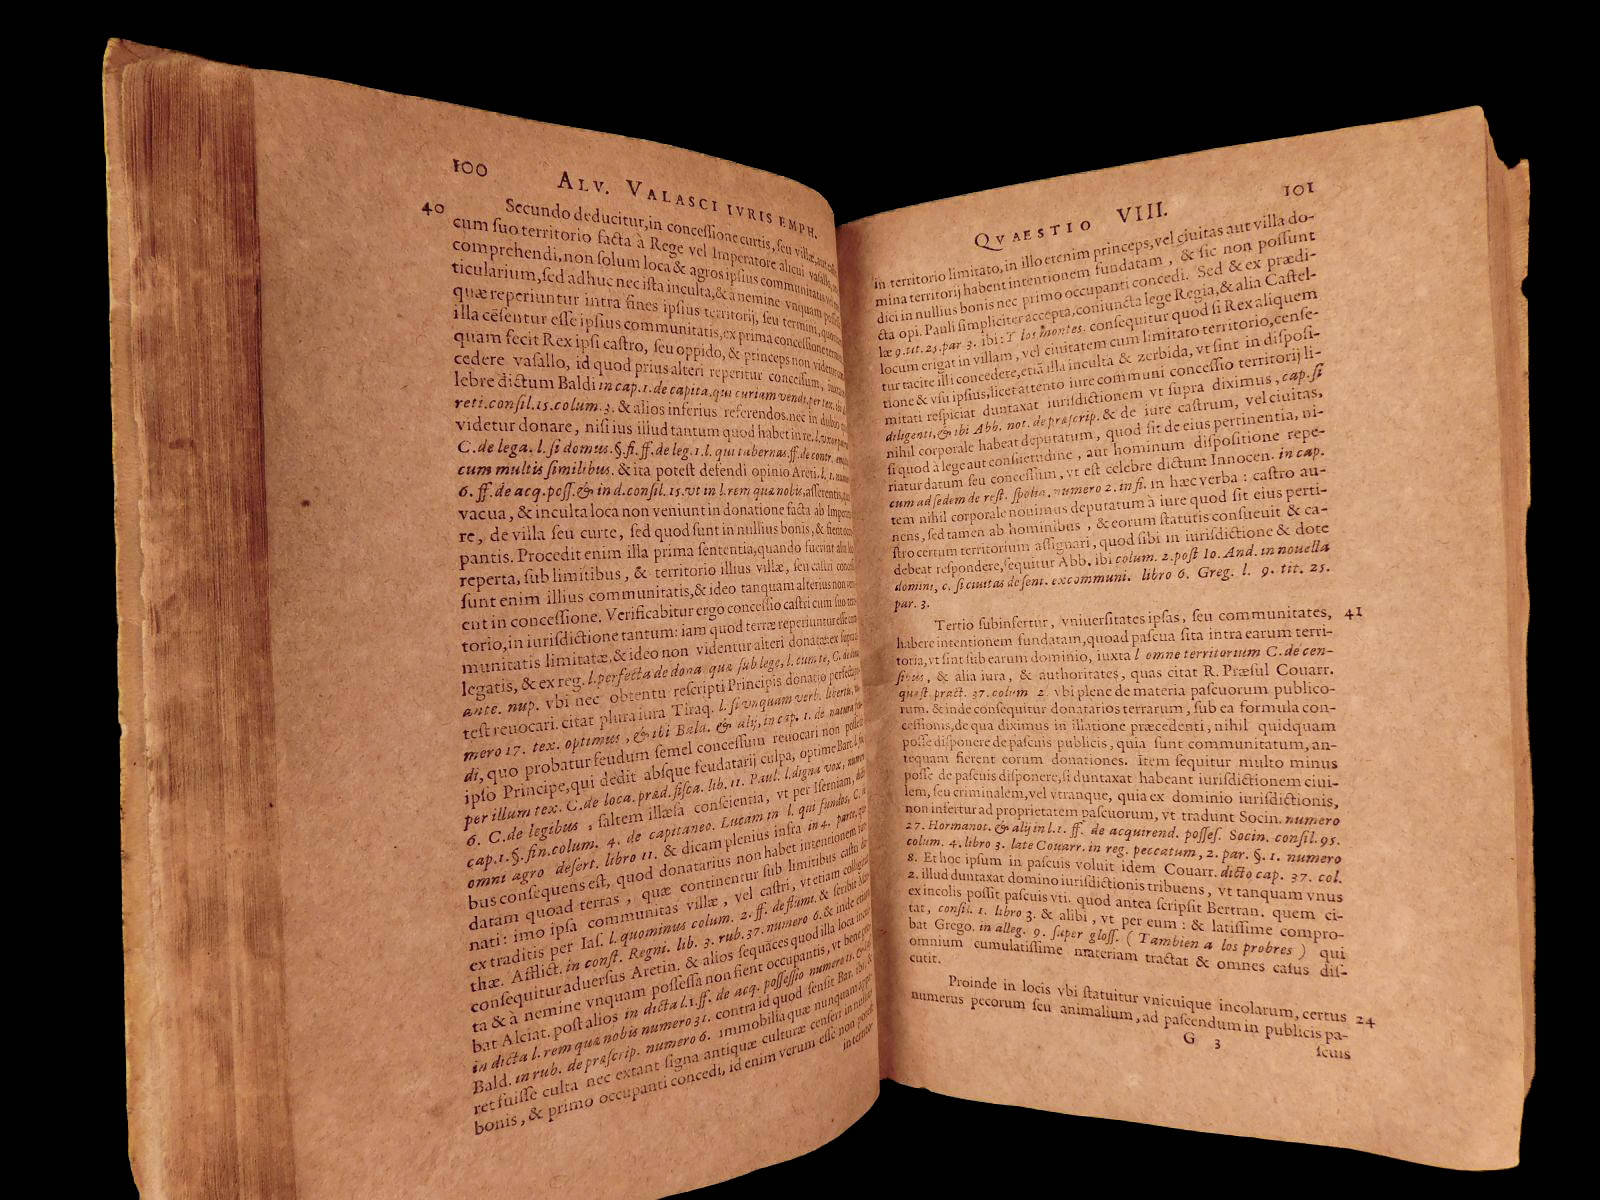 100
ALV. VALASCI IVRIS EMPH.
40
Secundo deducitur, in concessione curtis, seu villæ,
cum suo territorio facta à Rege vel Imperatore alicui vasallo,
comprehendi, non solum loca & agros ipsius communitatis vel
ticularium, sed adhuc nec ista inculta, & à nemine vnquam
quæ reperiuntur intra fines ipsius territorij, seu termini,
illa cēsentur esse ipsius communitatis, ex prima concessione
quam fecit Rex ipsi castro, seu oppido, & princeps non videtur
cedere vasallo, id quod prius alteri reperitur concessum,
lebre dictum Baldi in cap. 1. de capita. qui curiam vendi. per tex.
reti. consil. 15. colum. 3. & alios inferius referendos. nec in dubio
videtur donare, nisi ius illud tantum quod habet in re. l.
C. de lega. l. si domus. §. fi. ff. de leg. 1. l. qui tabernas. ff. de contr.
cum multis similibus. & ita potest defendi opinio Areti. l. 1.
6. ff. de acq. poss. & in d. consil. 15. vt in l. rem quæ nobis,
vacua, & inculta loca non veniunt in donatione facta ab
re, de villa seu curte, sed quod sunt in nullius bonis, & fient
pantis. Procedit enim illa prima sententia, quando fuerint
reperta, sub limitibus, & territorio illius villæ, seu castri
sunt enim illius communitatis, & ideo tanquam alterius non
ent in concessione. Verificabitur ergo concessio castri cum suo
torio, in iurisdictione tantum: iam quod terræ reperiuntur esse
munitatis limitatæ, & ideo non videntur alteri donatæ: ex
legatis, & ex reg. l. perfecta de dona. quæ sub lege, l. cum te, C. de
ante. nup. vbi nec obtentu rescripti Principis donatio perfecta
test reuocari. citat plura iura Tiraq. l. si vnquam verb. libertis,
mero 17. tex. optimus, & ibi Bald. & alij, in cap. 1. de natura
di, quo probatur feudum semel concessum reuocari non
ipso Principe, qui dedit absque feudatarij culpa, optime Bart.
per illum tex. C. de loca. præd. fisca. lib. 11. Paul. l. digna vox,
6. C. de legibus, saltem illæsa conscientia, vt per Iserniam,
cap. 1. §. fin. colum. 4. de capitaneo. Lucam in l. qui fundos, C.
omni agro desert. libro 11. & dicam plenius infra in 4. parte,
bus consequens est, quod donatarius non habet intentionem
datam quoad terras, quæ continentur sub limitibus castri
nati: imo ipsa communitas villæ, vel castri, vt etiam
ex traditis per Ias. l. quominus colum. 2. ff. de flumi. & scribit
thæ. Afflict. in const. Regni. lib. 3. rub. 37. numero 6. & inde
consequitur aduersus Aretin. & alios sequaces quod illa loca
ta & à nemine vnquam possessa non fient occupantis, vt bene
bat Alciat. post alios in dicta l. 1. ff. de acq. possessio numero 11. &
in dicta l. rem quæ nobis numero 31. contra id quod sensit Bar. ibi, &
Bald. in rub. de præscrip. numero 6. immobilia quæ nunquam
ret fuisse culta nec extant signa antiquæ culturæ censeri in nullius
bonis, & primo occupanti concedi, id enim verum esse non potest
in territor
QVAESTIO VIII.
101
in territorio limitato, in illo etenim princeps, vel ciuitas aut villa do-
mina territorij habent intentionem fundatam, & sic non possunt
dici in nullius bonis nec primo occupanti concedi. Sed & ex prædi-
cta opi. Pauli simpliciter accepta, coniuncta lege Regia, & alia Castel-
læ 9. tit. 25. par 3. ibi: T los montes. consequitur quod si Rex aliquem
locum erigat in villam, vel ciuitatem cum limitato territorio, cense-
tur tacite illi concedere, etiā illa inculta & zerbida, vt sint in disposi-
tione & vsu ipsius, licet attento iure communi concessio territorij li-
mitati respiciat duntaxat iurisdictionem vt supra diximus, cap. si
diligenti, & ibi Abb. not. de præscrip. & de iure castrum, vel ciuitas,
nihil corporale habeat deputatum, quod sit de eius pertinentia, ni-
si quod à lege aut consuetudine, aut hominum dispositione repe-
riatur datum seu concessum, vt est celebre dictum Innocen. in cap.
cum ad sedem de rest. spolia. numero 2. in fi. in hæc verba: castro au-
tem nihil corporale nouimus deputatum à iure quod sit eius perti-
nens, sed tamen ab hominibus, & eorum statutis consueuit & ca-
stro certum territorium assignari, quod sibi in iurisdictione & dote
debeat respondere, sequitur Abb. ibi colum. 2. post Io. And. in nouella
domini, c. si ciuitas de sent. excommuni. libro 6. Greg. l. 9. tit. 25.
par. 3.
Tertio subinfertur, vniuersitates ipsas, seu communitates,
41
habere intentionem fundatam, quoad pascua sita intra earum terri-
toria, vt sint sub earum dominio, iuxta l omne territorium C. de cen-
sibus, & alia iura, & authoritates, quas citat R. Præsul Couarr.
quæst. pract. 37. colum 2. vbi plene de materia pascuorum publico-
rum. & inde consequitur donatarios terrarum, sub ea formula con-
cessionis, de qua diximus in illatione præcedenti, nihil quidquam
posse disponere de pascuis publicis, quia sunt communitatum, an-
tequam fierent eorum donationes. Item sequitur multo minus
posse de pascuis disponere, si duntaxat habeant iurisdictionem ciui-
lem, seu criminalem, vel vtranque, quia ex dominio iurisdictionis,
non infertur ad proprietatem pascuorum, vt tradunt Socin. numero
27. Hormanot. & alij in l. 1. ff. de acquirend. posses. Socin. consil. 95.
colum. 4. libro 3. late Couarr. in reg. peccatum, 2. par. §. 1. numero
8. Et hoc ipsum in pascuis voluit idem Couarr. dicto cap. 37. col.
2. illud duntaxat domino iurisdictionis tribuens, vt tanquam vnus
ex incolis possit pascuis vti. quod antea scripsit Bertran. quem ci-
tat, consil. 1. libro 3. & alibi, vt per eum: & latissime compro-
bat Grego. in alleg. 9. super gloss. (Tambien a los probres) qui
omnium cumulatissime materiam tractat & omnes casus dis-
cutit.
Proinde in locis vbi statuitur vnicuique incolarum, certus
24
numerus pecorum seu animalium, ad pascendum in publicis pa-
G 3
scuis